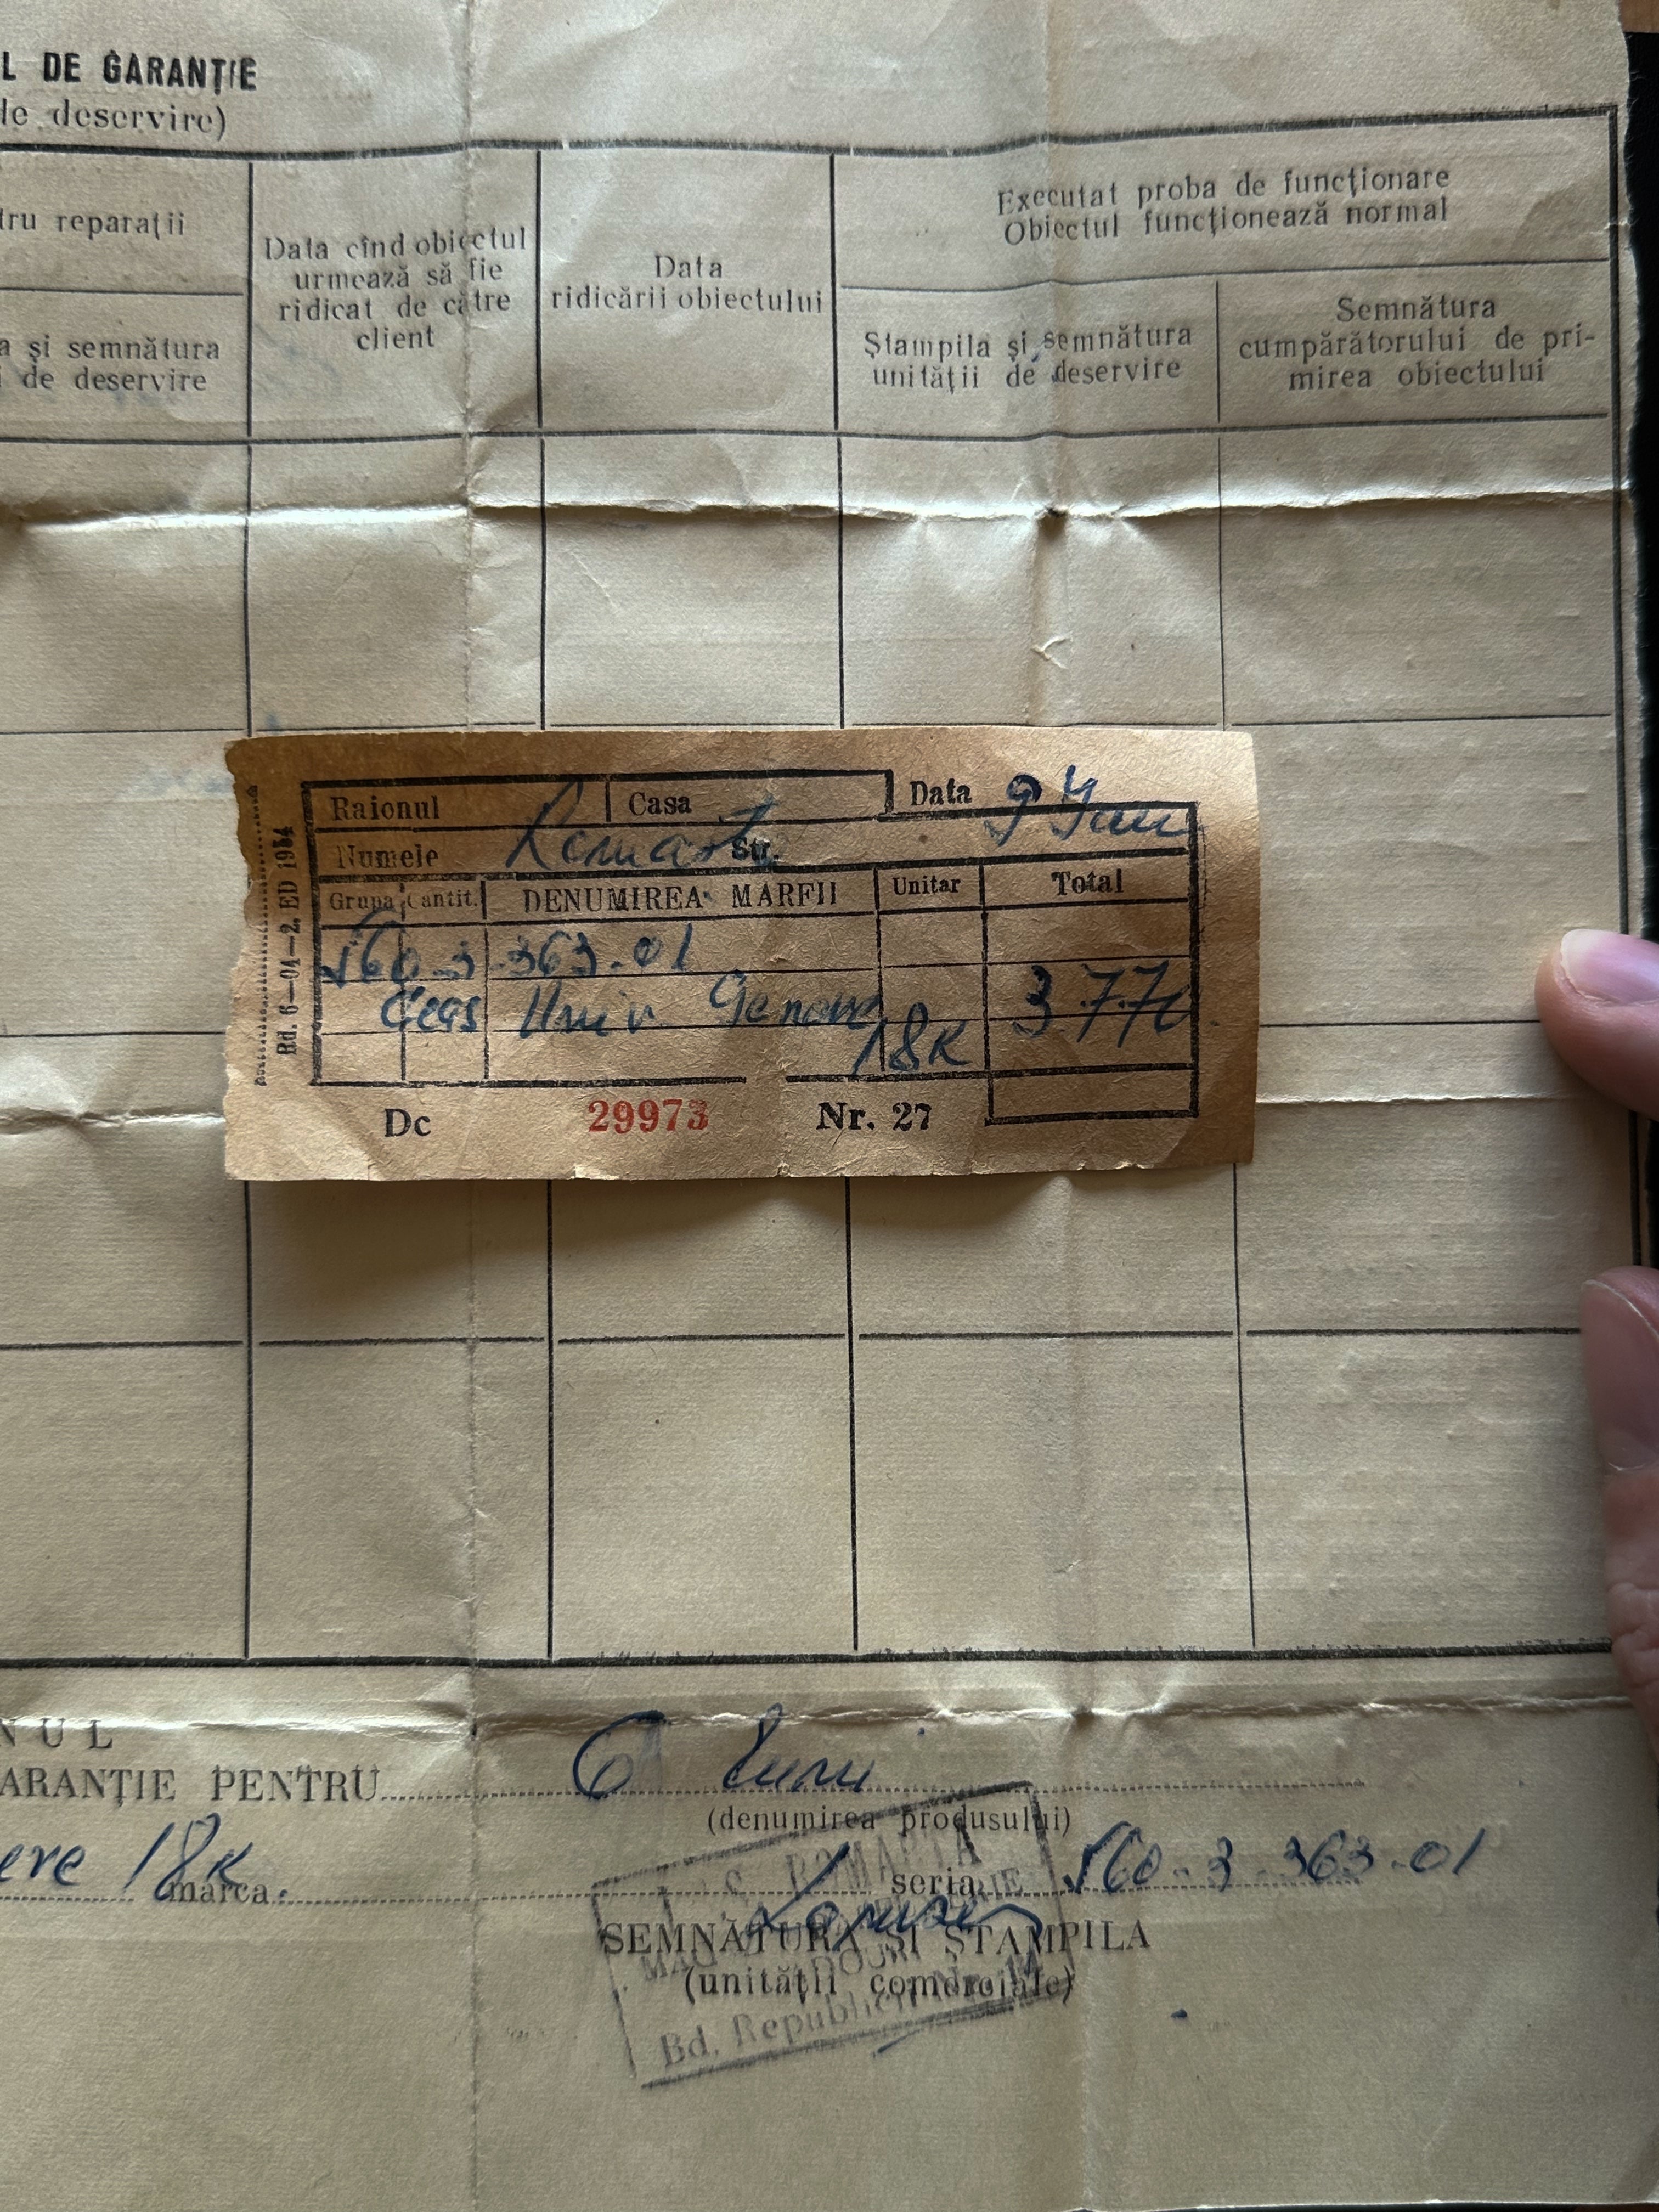 L DE GARANȚIE
de deservire)
tru reparații
a și semnătura
i de deservire
Data cînd obiectul
urmează să fie
ridicat de către
client
Data
ridicării obiectului
Executat proba de funcționare
Obiectul funcționează normal
Ștampila și semnătura
unității de deservire
Semnătura
cumpărătorului de pri-
mirea obiectului
Rd. 6—04—2. ED 1954
Raionul Casa Data 9 Ian
Numele Romarta Str.
Grupa Cantit. DENUMIREA MARFII Unitar Total
560-3-363.01
Ceas Univ Geneve 377
18K
Dc 29973 Nr. 27
NUL
ARANȚIE PENTRU 6 luni
(denumirea produsului)
ere 18K marca seria 560-3-363-01
SEMNĂTURA ȘI ȘTAMPILA
(unității comerciale)
ROMARTA
Bd. Republicii